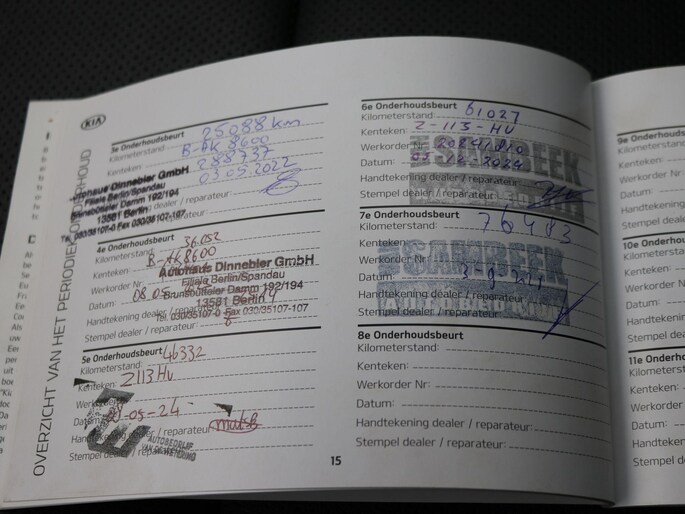 KIA
OVERZICHT VAN HET PERIODIEK ONDERHOUD
3e Onderhoudsbeurt
Kilometerstand: 25088 km
Kenteken: B-AK 8600
288737
03.05.2022
Autohaus Dinnebier GmbH
Filiale Berlin/Spandau
Brunsbütteler Damm 192/194
13581 Berlin
Tel. 030/35107-0 Fax 030/35107-107
Stempel dealer / reparateur:
4e Onderhoudsbeurt
Kilometerstand: 36.052
Kenteken: B-AK8600
Werkorder Nr:
Datum: 08.05.
Autohaus Dinnebier GmbH
Filiale Berlin/Spandau
Brunsbütteler Damm 192/194
13581 Berlin
Tel. 030/35107-0 Fax 030/35107-107
Handtekening dealer / reparateur:
Stempel dealer / reparateur:
5e Onderhoudsbeurt
Kilometerstand: 46332
Kenteken: Z113HV
Werkorder Nr:
Datum: -05-24
Handtekening dealer / reparateur:
AUTOBEDRIJF
VAN DE WETERING
Stempel dealer / reparateur:
15
6e Onderhoudsbeurt
Kilometerstand: 61027
Kenteken: Z-113-HV
Werkorder Nr:
Datum: 12-2024
SAMBEEK
Handtekening dealer / reparateur:
Stempel dealer / reparateur:
7e Onderhoudsbeurt
Kilometerstand: 76483
Kenteken:
Werkorder Nr:
Datum:
SAMBEEK
Handtekening dealer / reparateur:
Stempel dealer / reparateur:
8e Onderhoudsbeurt
Kilometerstand:
Kenteken:
Werkorder Nr:
Datum:
Handtekening dealer / reparateur:
Stempel dealer / reparateur:
9e Onder
Kilometerst
Kenteken:
Werkorder
Datum:
Handtekening
Stempel de
10e Onder
Kilometers
Kenteken:
Werkorder
Datum:
Handteken
Stempel d
11e Onder
Kilometers
Kenteken:
Werkorder
Datum:
Handteken
Stempel d